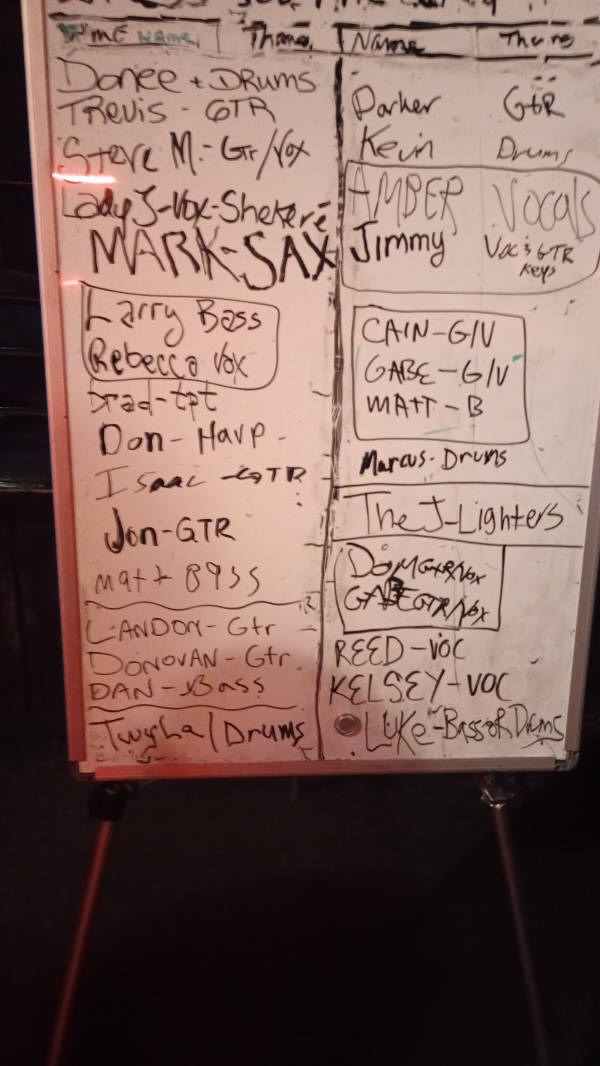 Name
Donee + DRUMS
TREVIS - GTR
Steve M. - Gtr/Vox
Lady J - Vox - Shekere
MARK - SAX
Larry Bass
Rebecca Vox
Brad - tpt
Don - Harp -
Isaac - GTR
Jon - GTR
Matt Bass
LANDON - Gtr
DONOVAN - Gtr.
DAN - Bass
Twyla / Drums
Name
Parker GtR
Kevin Drums
AMBER Vocals
Jimmy Voc & GTR
Keys
CAIN - G/V
GABE - G/V
MATT - B
Marcus - Drums
The J-Lighters
DOM GTR/Vox
GABE GTR/Vox
REED - VOC
KELSEY - VOC
LUKE - Bass OR Drums